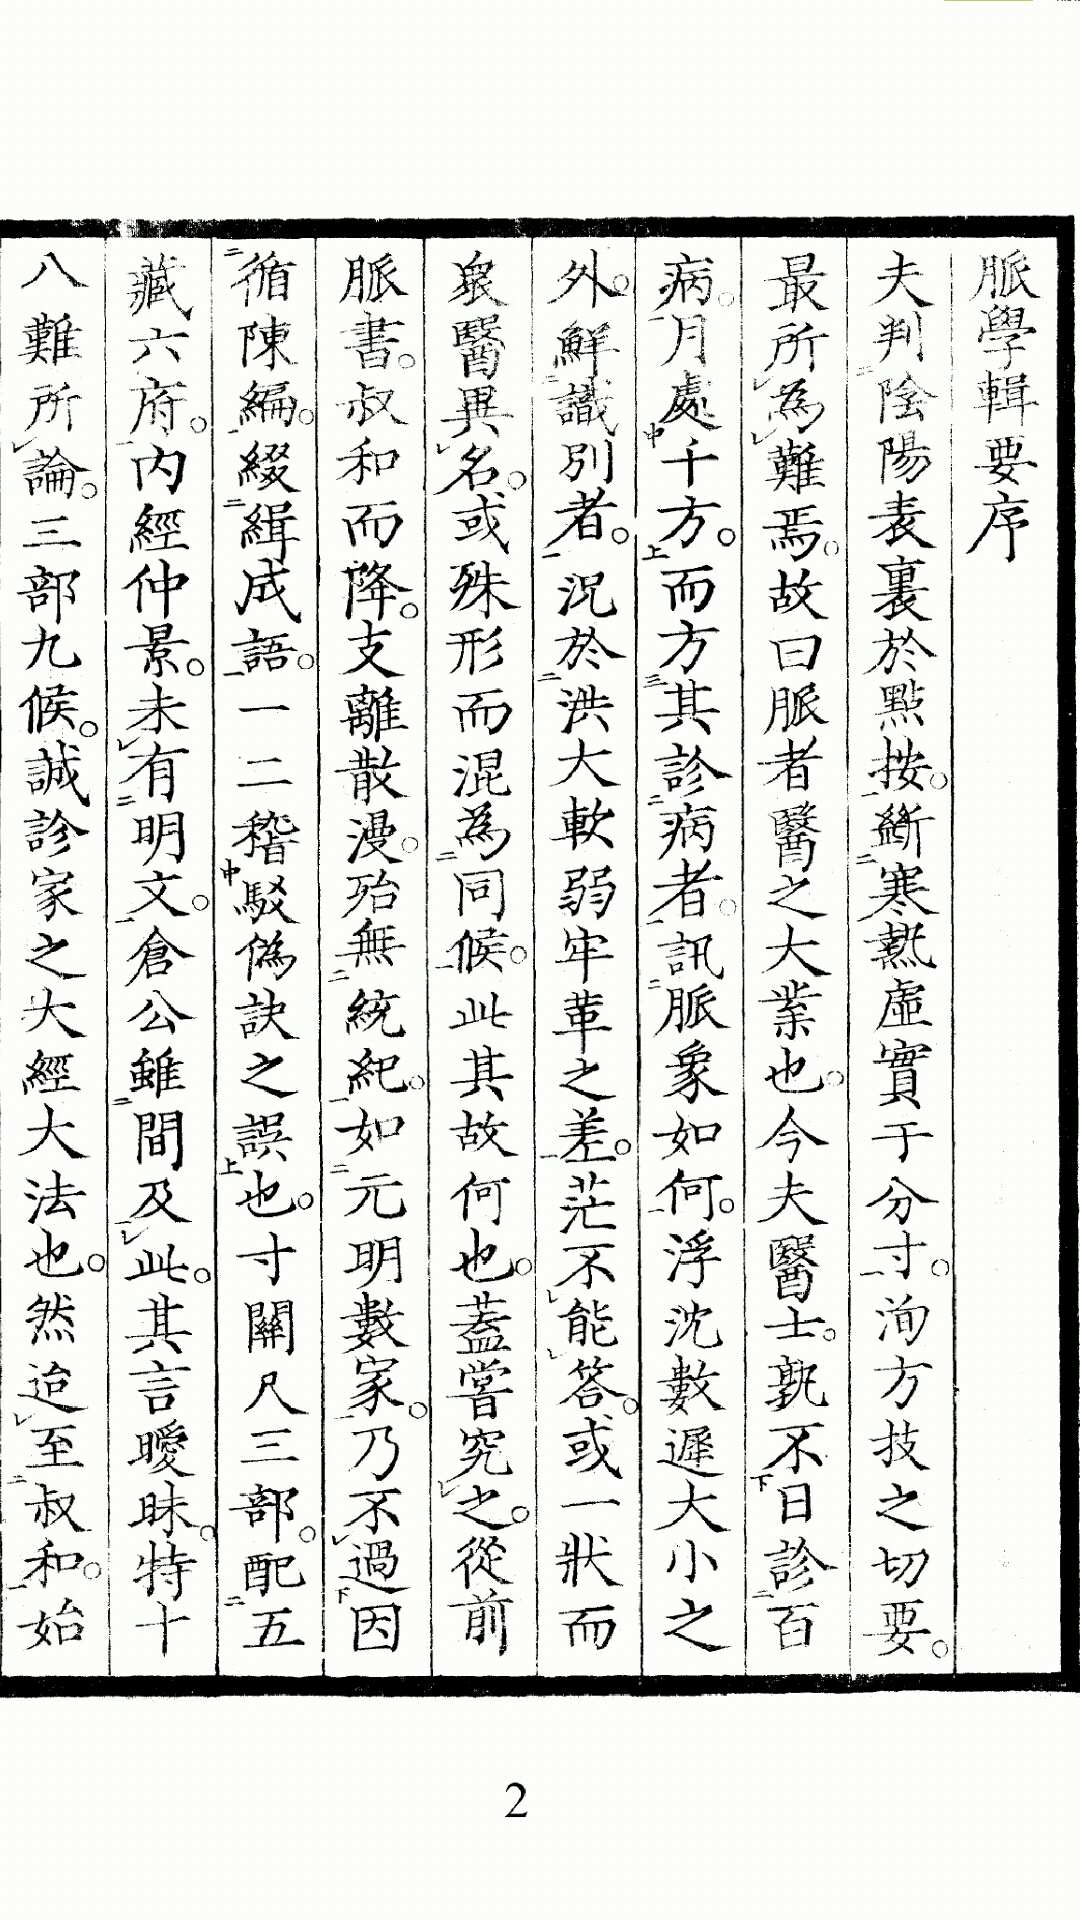 脈學輯要序
夫判陰陽表裏於點按。斷寒熱虛實于分寸。洵方技之切要。
最所為難焉。故曰脈者醫之大業也。今夫醫士。孰不日診百
病。月處千方。而方其診病者。訊脈象如何。浮沈數遲大小之
外。鮮識別者。況於洪大軟弱牢革之差。茫不能答。或一狀而
衆醫異名。或殊形而混為同候。此其故何也。蓋嘗究之。從前
脈書。叔和而降。支離散漫。殆無統紀。如元明數家。乃不過因
循陳編。綴緝成語。一二稽駁偽訣之誤也。寸關尺三部。配五
藏六府。內經仲景。未有明文。倉公雖間及此。其言曖昧。特十
八難所論。三部九候。誠診家之大經大法也。然迨至叔和。始
2